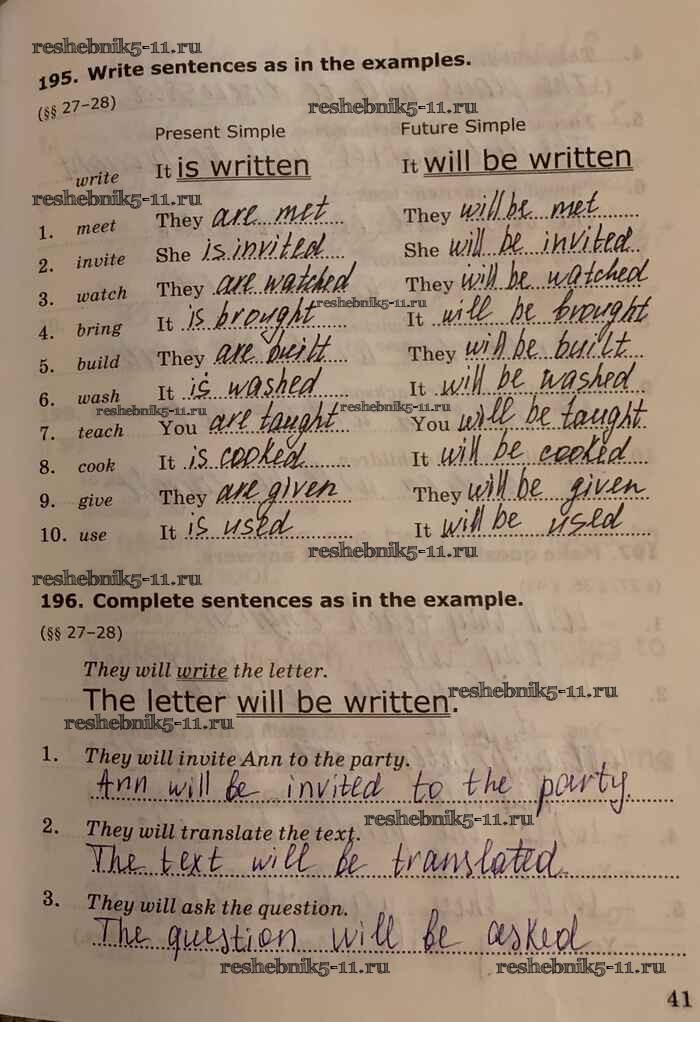 reshebnik5-11.ru
195. Write sentences as in the examples.
(§§ 27–28)
reshebnik5-11.ru
Present Simple Future Simple
write It is written It will be written
reshebnik5-11.ru
1. meet They are met They will be met
2. invite She is invited She will be invited
3. watch They are watched They will be watched
reshebnik5-11.ru
4. bring It is brought It will be brought
5. build They are built They will be built
6. wash It is washed It will be washed
reshebnik5-11.ru reshebnik5-11.ru
7. teach You are taught You will be taught
8. cook It is cooked It will be cooked
9. give They are given They will be given
10. use It is used It will be used
reshebnik5-11.ru
reshebnik5-11.ru
196. Complete sentences as in the example.
(§§ 27–28)
They will write the letter.
The letter will be written.
reshebnik5-11.ru
reshebnik5-11.ru
1. They will invite Ann to the party.
Ann will be invited to the party.
reshebnik5-11.ru
2. They will translate the text.
The text will be translated.
3. They will ask the question.
The question will be asked
reshebnik5-11.ru reshebnik5-11.ru
41